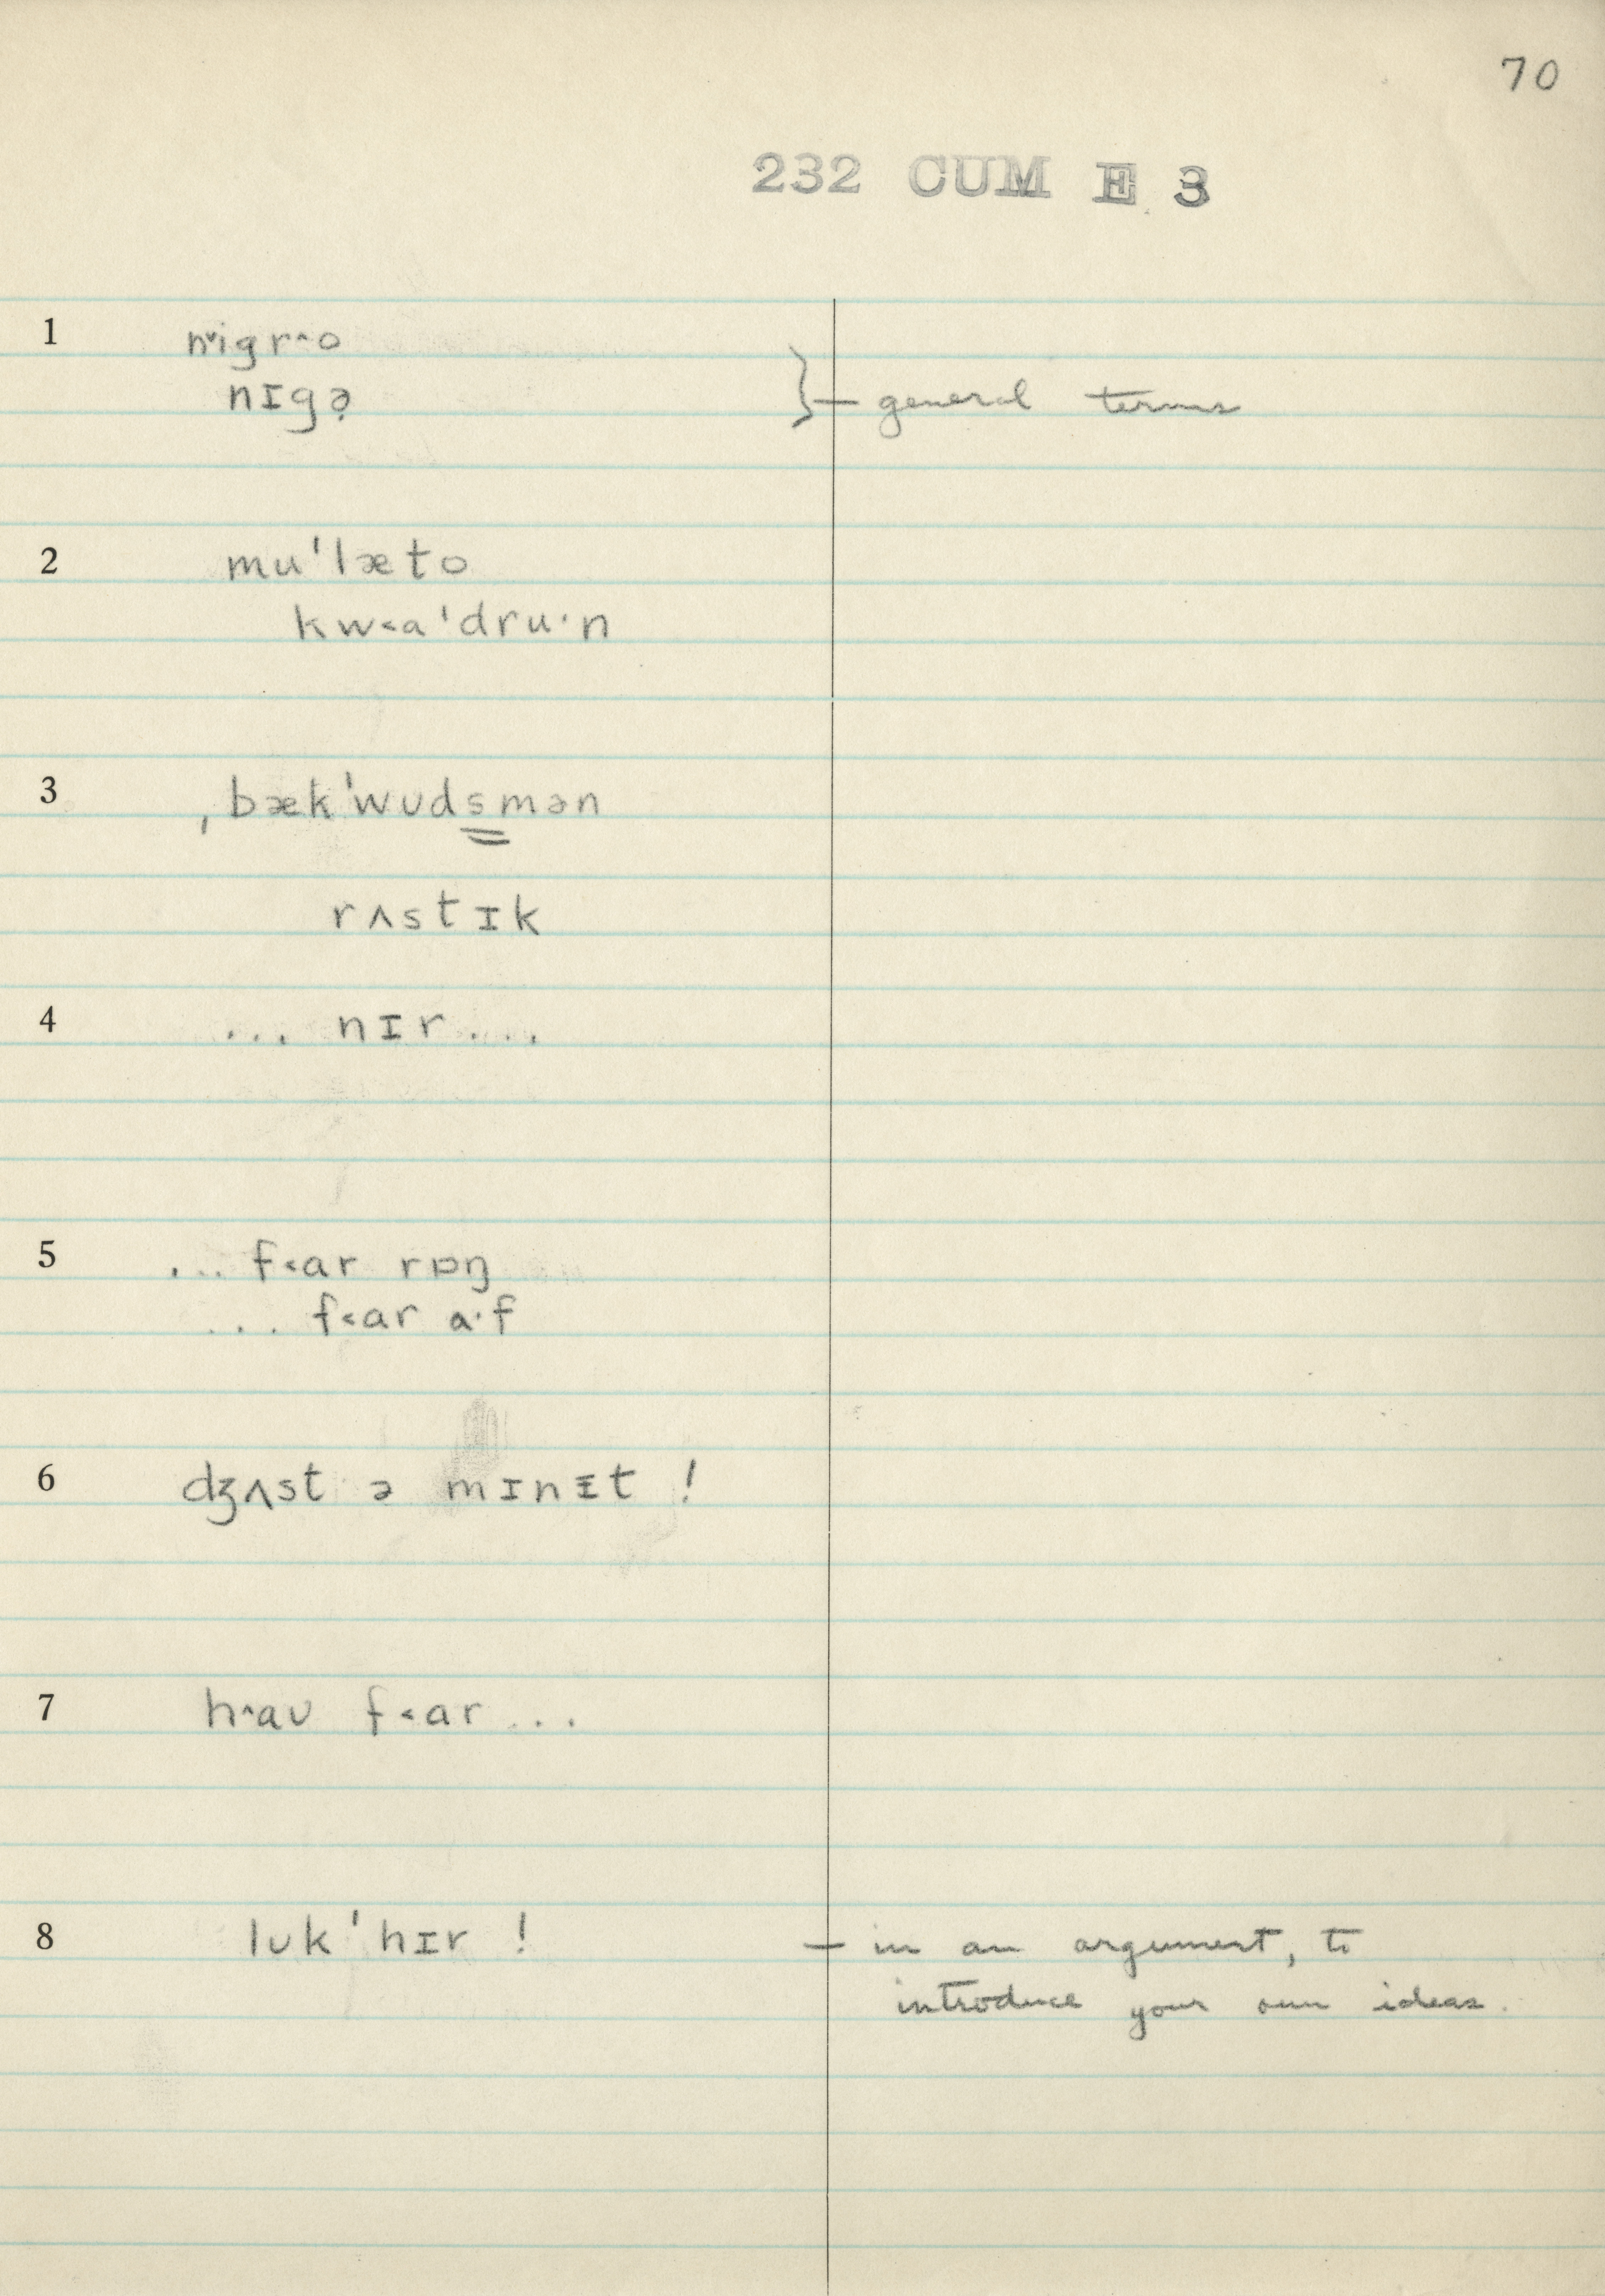 70
232 CUM E 3
1 n˅igr^o
nɪgə̣ } — general terms
2 mu'læto
kw<a'dru·n
3 ˌbæk'wʊds̳mən
rʌstɪk
4 ... nɪr ...
5 ... f<ar rɒŋ
... f<ar ɑ·f
6 dʒʌst ə mɪnɪ̵t !
7 h^aʊ f<ar ...
8 lʊk'hɪr ! — in an argument, to
introduce your own ideas.